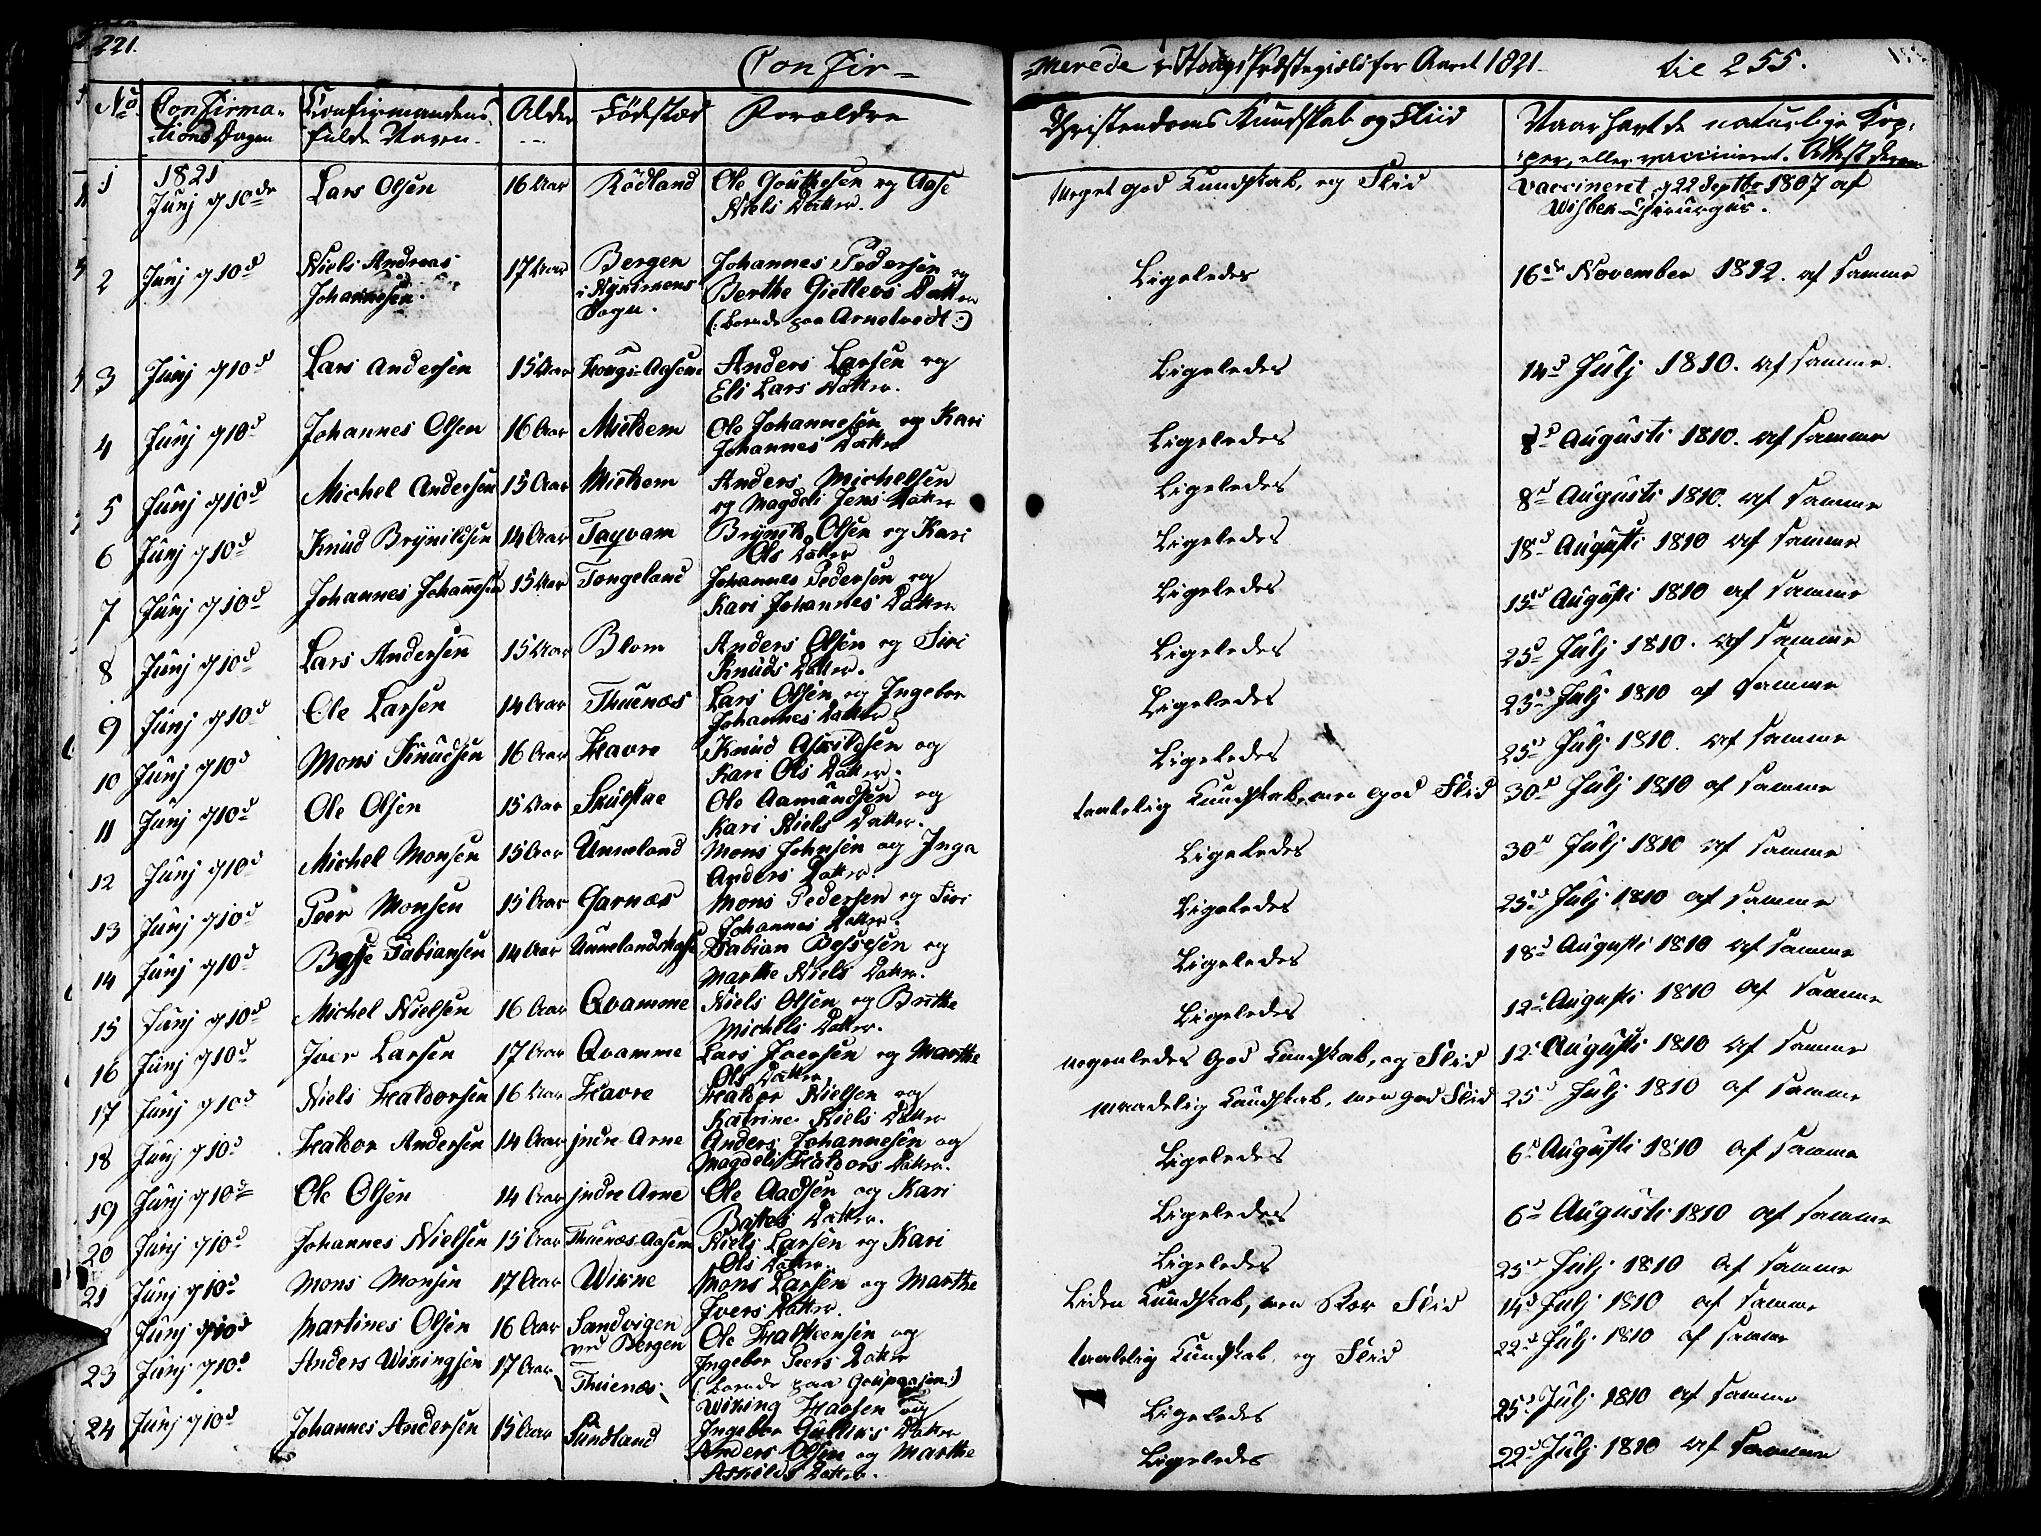 221.
Confir-
-merede i Hougs Præstegield for Aaret 1821. til 255.
No. Confirma- Confirmandens Alder Fødstæd Foraldre Christendoms Kundskab og Fliid Naar havt de naturlige Kop-
tions Dagen fulde Navn. per, eller vaccineret. Attest derom
1 1821 Lars Olsen 16 Aar Rödland Ole Gouttesen og Aase meget god Kundskab, og Flid Vaccineret 22 Septbr 1807 af
Junj 10de Niels Datter. Chirurgus.
2 Junj 10d Niels Andreas 17 Aar Bergen Johannes Pedersen og Ligeledes 16de November 1812. af samme
Johannesen. i Sogn. Berthe Datter
(: boende paa Arnetvedt :)
3 Junj 10d Lars Andersen 15 Aar Hougs-Aasene Anders Larsen og Ligeledes 14d Julj 1810. af samme.
Eli Lars Datter.
4 Junj 10d Johannes Olsen 16 Aar Mieldem Ole Johannesen og Kari Ligeledes 8d Augusti 1810. af samme
Johannes Datter
5 Junj 10d Michel Andersen 15 Aar Mieldem Anders Michelsen Ligeledes 8d Augusti 1810. af samme
og Magdeli Jens Datter
6 Junj 10d Knud Brynildsen 14 Aar Brynild Olsen og Kari Ligeledes 18d Augusti 1810 af samme
Ols Datter
7 Junj 10d Johannes Johannesen 15 Aar Tongeland Johannes Pedersen og Ligeledes 15d Augusti 1810 af samme
Kari Johannes Datter
8 Junj 10d Lars Andersen 15 Aar Blom Anders Olsen og Siri Ligeledes 25d Julj 1810. af samme
Knuds Datter.
9 Junj 10d Ole Larsen 14 Aar Thuenæs Lars Olsen og Ingebor Ligeledes 25d Julj 1810 af samme
Johannes Datter
10 Junj 10d Mons Knudsen 16 Aar Havre Knud Askildsen og Ligeledes 25d Julj 1810. af samme
Kari Ols Datter.
11 Junj 10d Ole Olsen 15 Aar Skulstae Ole Aamundsen og taalelig Kundskab, men god Flid 30d Julj 1810 af samme
Kari Niels Datter.
12 Junj 10d Michel Monsen 15 Aar Unneland Mons Johnsen og Inga Ligeledes 30d Julj 1810 af samme
Anders Datter.
13 Junj 10d Peer Monsen 15 Aar Garnæs Mons Pedersen og Siri Ligeledes 25d Julj 1810 af samme
Johannes Datter.
14 Junj 10d Fabiansen 14 Aar Fabian Bessesen og Ligeledes 18d Augusti 1810 af samme
Marthe Niels Datter.
15 Junj 10d Michel Nielsen 16 Aar Qvamme Niels Olsen og Brithe Ligeledes 12d Augusti 1810 af samme
Michels Datter.
16 Junj 10d Iver Larsen 17 Aar Qvamme Lars Iversen og Marthe nogenledes god Kundskab, og Flid 12d Augusti 1810 af samme
Ols Datter
17 Junj 10d Niels Haldorsen 16 Aar Havre Haldor Nielsen og maadelig Kundskab, men god Flid 25d Julj 1810 af samme
Katrine Niels Datter
18 Junj 10d Haldor Andersen 14 Aar jndre Arne Anders Johannesen og Ligeledes 6d Augusti 1810 af samme
Magdeli Haldors Datter.
19 Junj 10d Ole Olsen 14 Aar jndre Arne Ole Aadsen og Kari Ligeledes 6d Augusti 1810 af samme
Datter.
20 Junj 10d Johannes Nielsen 15 Aar Thuenæs-Aasene Niels Larsen og Kari Ligeledes 25d Julj 1810 af samme
Ols Datter
21 Junj 10d Mons Monsen 17 Aar Wikne Mons Larsen og Marthe Liden Kundskab, men Stor Flid 14d Julj 1810 af samme
Ivers Datter.
Junj 10d Martines Olsen 16 Aar Sandvigen Ole Halstensen og taalelig Kundskab og Flid 22d Julj 1810 af samme
ved Bergen Ingebor Peers Datter
23 Junj 10d Anders Wikingsen 17 Aar Thuenæs (: boende paa :) Ligeledes 25d Julj 1810 af samme
Wiking Haasen og
Ingebor Gulliks Datter
24 Junj 10d Johannes Andersen 15 Aar Sundland Anders Olsen og Marthe Ligeledes 22d Julj 1810 af samme
Askilds Datter.